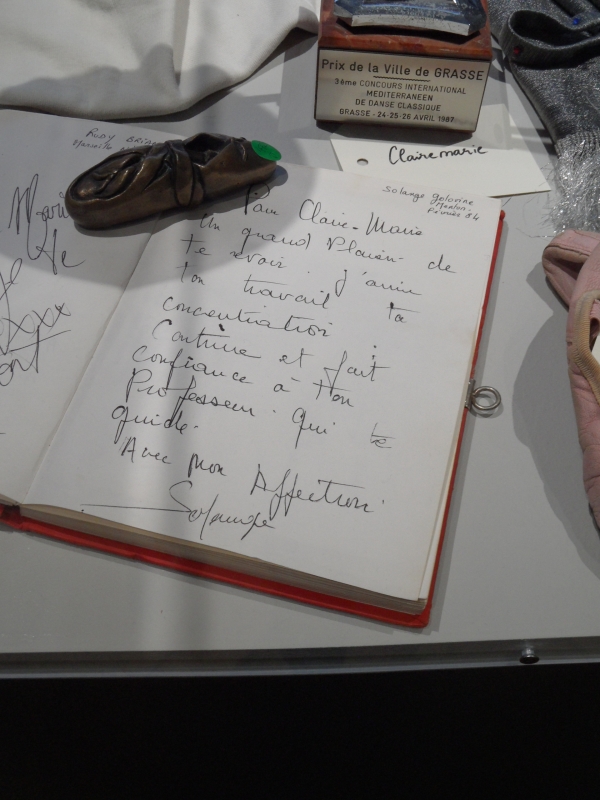 Prix de la Ville de GRASSE
3ème CONCOURS INTERNATIONAL
MEDITERRANEEN
DE DANSE CLASSIQUE
GRASSE - 24-25-26 AVRIL 1987
Clairemarie
RUDY
Solange golovine
Menton.
Février 84
Pour Claire-Marie
Un grand Plaisir de
te revoir. j'aime
ton travail ta
concentration.
Continue et fait
confiance à ton
Professeur. qui te
guide.
Avec Mon Affection
Solange